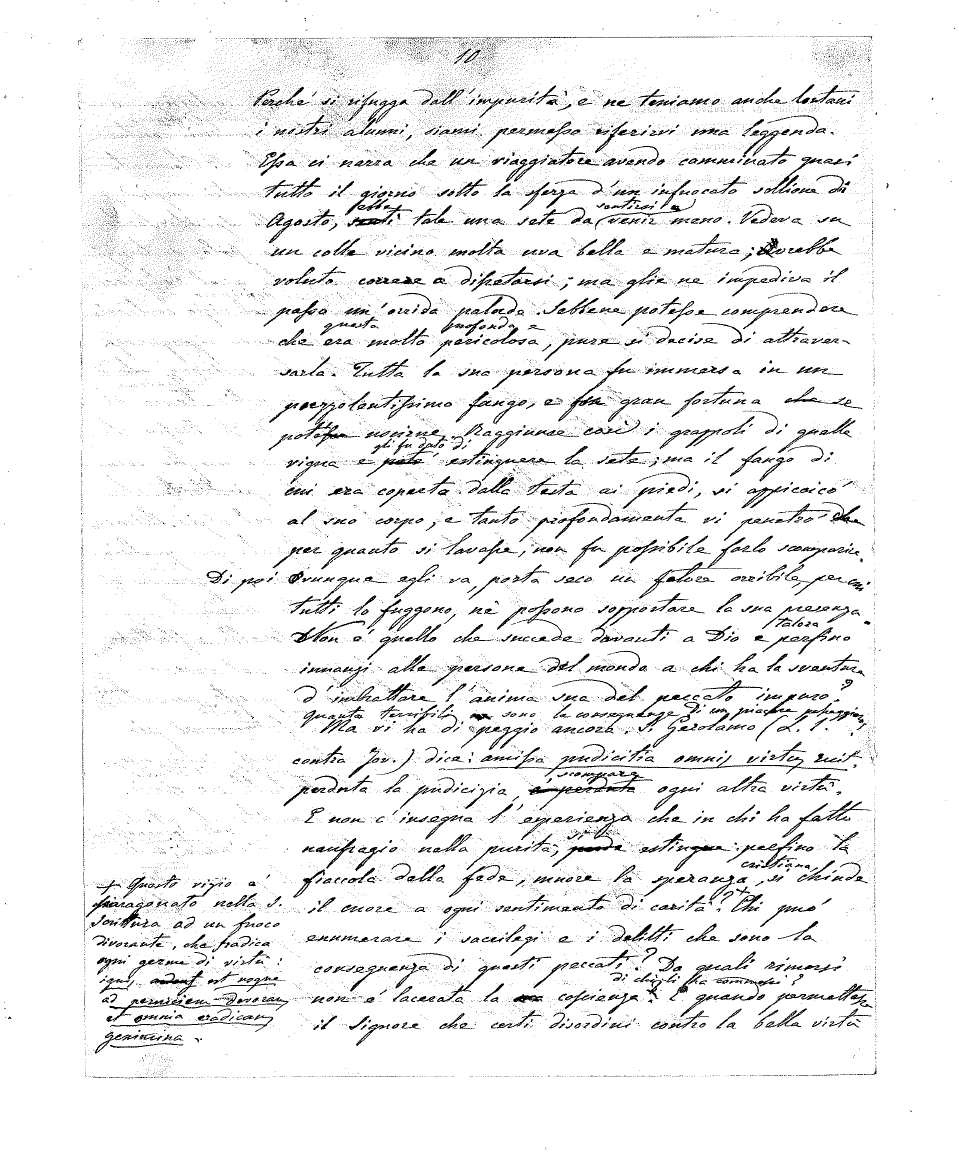 10
Perché si rifugga dall'impurità, e ne teniamo anche lontani
i nostri alunni, siami permesso riferirvi una leggenda.
Essa ci narra che un viaggiatore avendo camminato quasi
tutto il giorno sotto la sferza d'un infuocato sollione di
ebbe sentirsi a
Agosto, sentì tale una sete da venir meno. Vedeva su
un colle vicino molta uva bella e matura; Avrebbe
voluto correre a dissetarsi; ma glie ne impediva il
passo un'orrida palude. Sebbene potesse comprendere
questa profonda e
che era molto pericolosa, pure si decise di attraver-
sarla. Tutta la sua persona fu immersa in un
puzzolentissimo fango, e fu gran fortuna che se
potè uscirne. Raggiunse così i grappoli di quella
gli fu dato di
vigna e potè estinguere la sete; ma il fango di
cui era coperto dalla testa ai piedi, si appiccicò
al suo corpo, e tanto profondamente vi penetrò che
per quanto si lavasse, non fu possibile farlo scomparire.
Di poi Ovunque egli va, porta seco un fetore orribile, per cui
tutti lo fuggono, nè possono sopportare la sua presenza.
talora
Non è quello che succede davanti a Dio e perfino
innanzi alle persone del mondo a chi ha la sventura
d'imbrattare l'anima sua del peccato impuro?
quanto terribili sono le conseguenze di un piacere passeggiero!
Ma vi ha di peggio ancora. S. Gerolamo (L. 1.
contra Jov.) dice: amissa pudicitia omnis virtus ruit.
scompare
perduta la pudicizia, è perduta ogni altra virtù.
E non c'insegna l'esperienza che in chi ha fatto
si
naufragio nella purità, perde estingue perfino la
cristiana
fiaccola della fede, muore la speranza, si chiude
il cuore a ogni sentimento di carità?+ Chi può
enumerare i sacrilegi e i delitti che sono la
conseguenza di questi peccati? Da quali rimorsi
di chi gli ha commessi?
non è lacerata la coscienza? E quando permettesse
il Signore che certi disordini contro la bella virtù
+ Questo vizio è
paragonato nella S.
Scrittura ad un fuoco
divorante, che sradica
ogni germe di virtù:
ignis est usque
ad perniciem devorans,
et omnia eradicans
genimina.